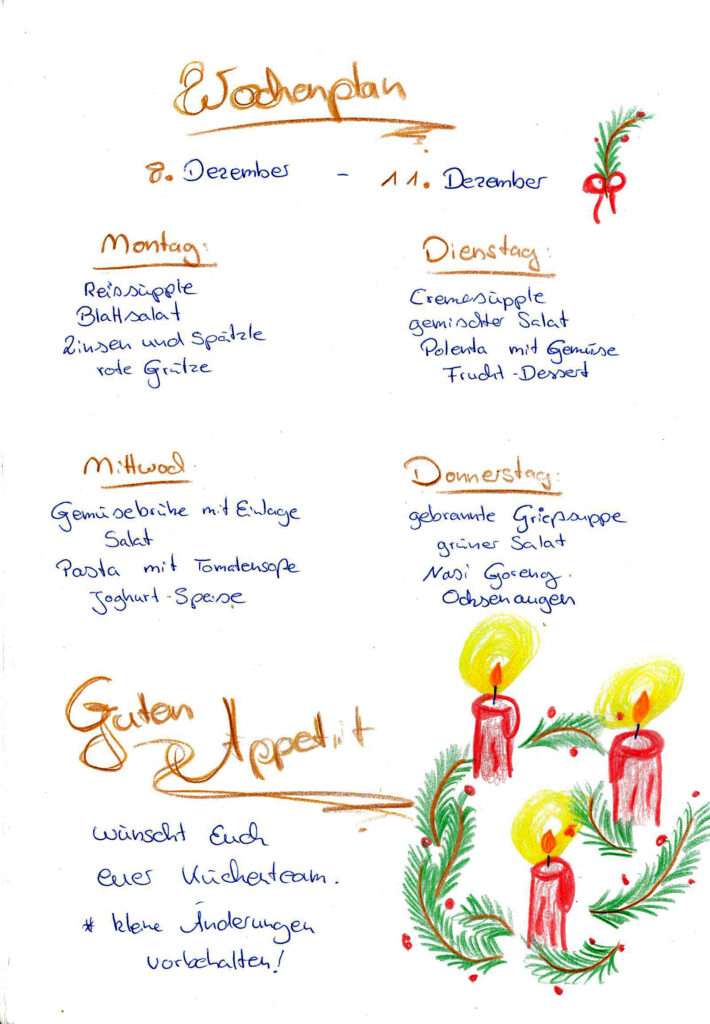 Wochenplan
8. Dezember - 11. Dezember
Montag:
Reissüpple
Blattsalat
Linsen und Spätzle
rote Grütze
Dienstag:
Cremesüpple
gemischter Salat
Polenta mit Gemüse
Frucht-Dessert
Mittwoch
Gemüsebrühe mit Einlage
Salat
Pasta mit Tomatensoße
Joghurt-Speise
Donnerstag:
gebrannte Grießsuppe
grüner Salat
Nasi Goreng.
Ochsenaugen
Guten Appetit
wünscht Euch
euer Küchenteam.
* kleine Änderungen
vorbehalten!